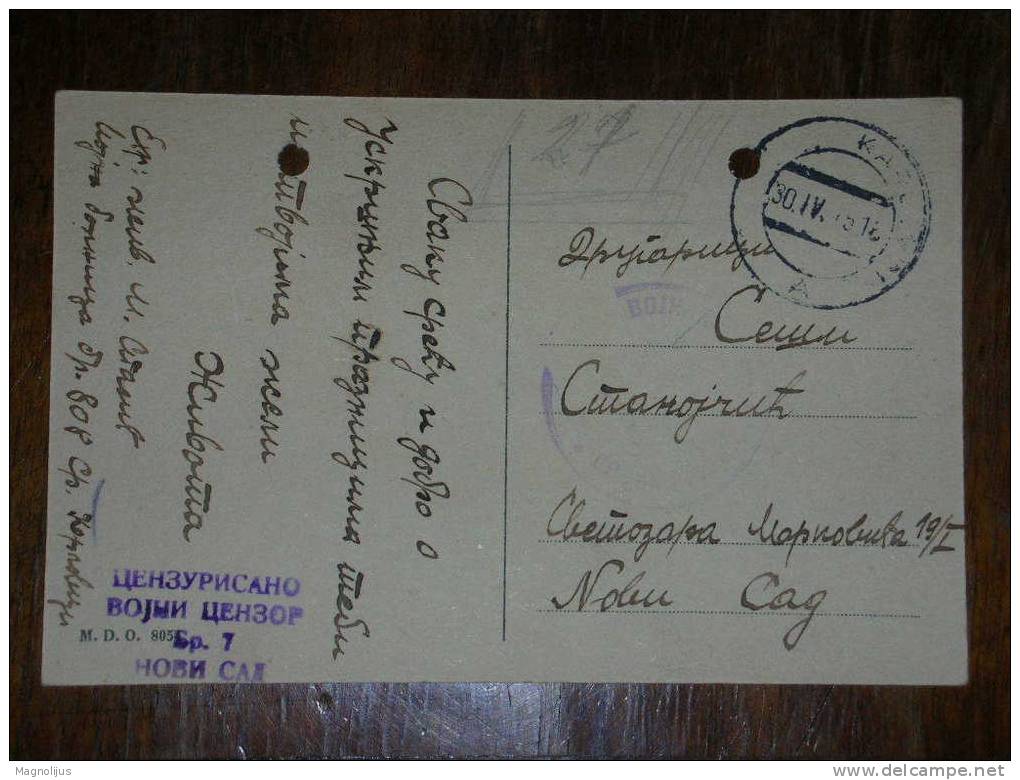 Сваку срећу и добро о
Ускршњим празницима теби
и твојима жели
Живота
М. 
бр. 808 Ср. Карловци
ЦЕНЗУРИСАНО
ВОЈНИ ЦЕНЗОР
Бр. 7
НОВИ САД
M. D. O. 805
27
30.IV.
ВОЈН
Другарици
Сеши
Станојчић
Светозара Марковића 19/I
Нови Сад
Magnolijus
delcampe.net